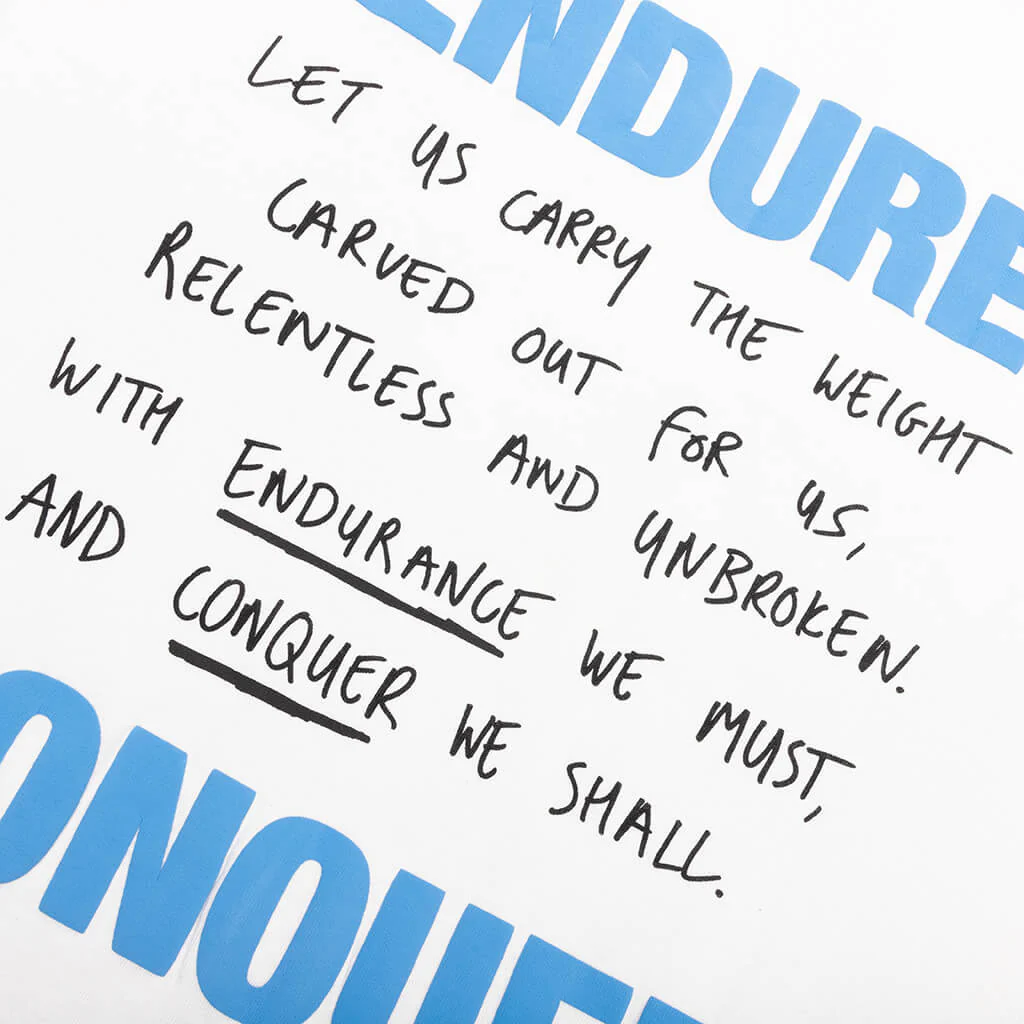 ENDURE
LET US CARRY THE WEIGHT
CARVED OUT FOR US,
RELENTLESS AND UNBROKEN.
WITH ENDURANCE WE MUST,
AND CONQUER WE SHALL.
ONQUE